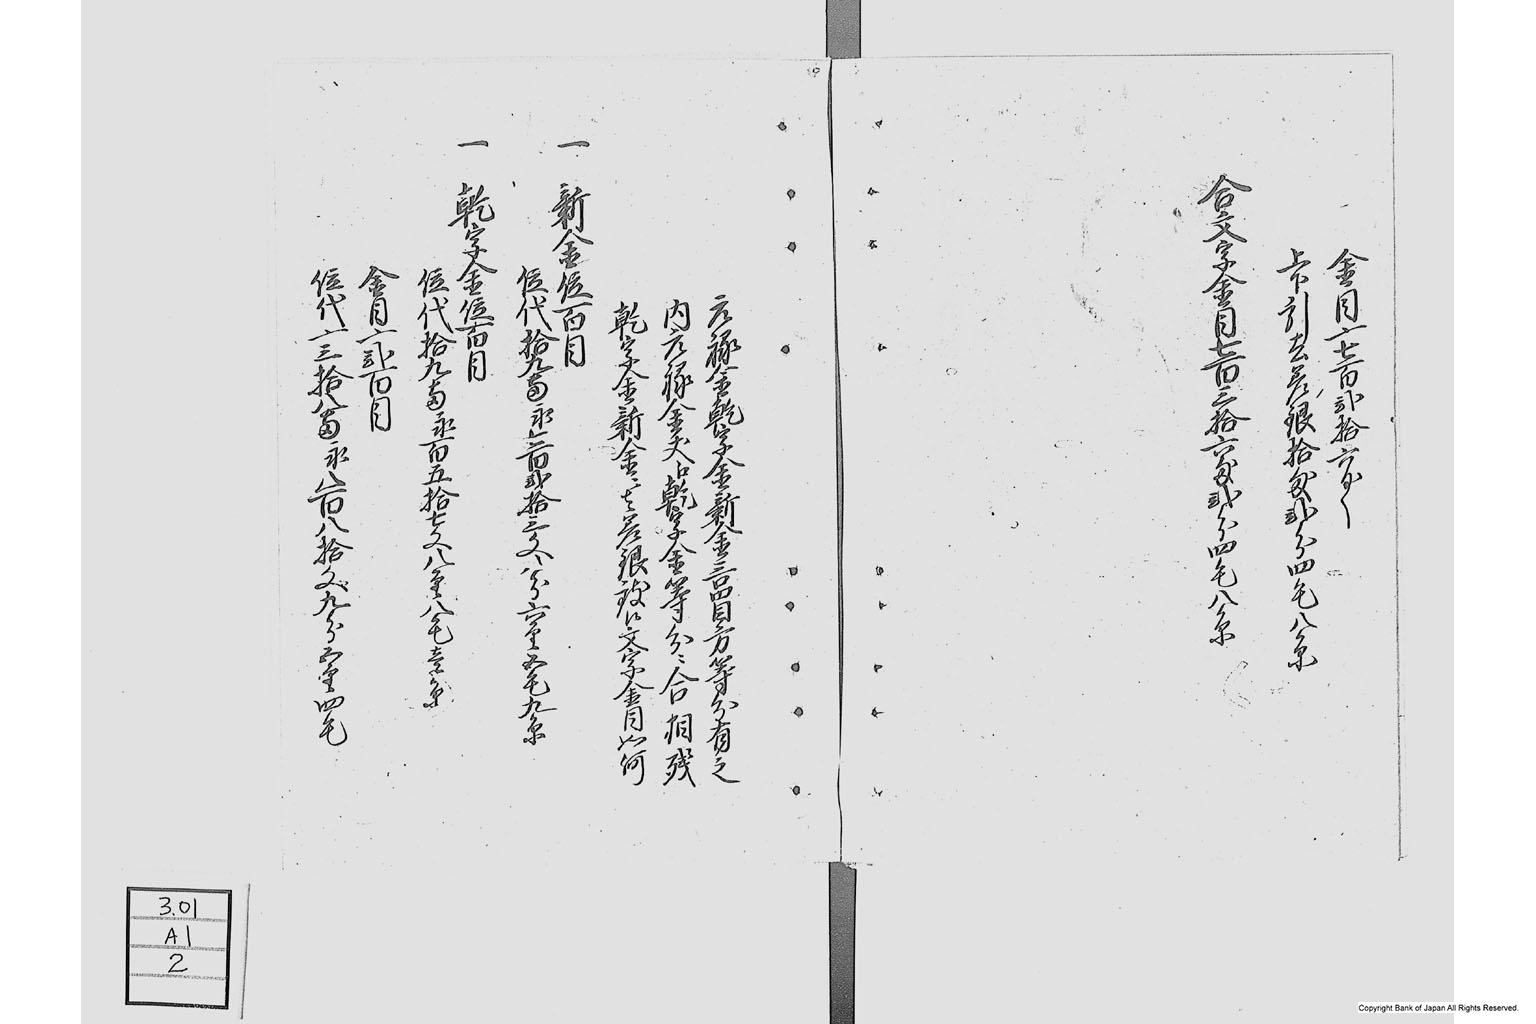 金目〆七百弐拾六匁
引去差銀拾匁弐分四毛八糸
合文字金目七百三拾六匁弐分四毛八糸
元禄金乾字金新金三口四目方等分有之
内元禄金 乾字金等分ニ合相残
乾字金新金ニ 差銀 文字金目如何
一 新金位百目
位代拾九両永 百弐拾三文八分六厘五毛九糸
一 乾字金位百目
位代拾九両永百五拾七文八厘八毛壱糸
金目〆弐百目
位代〆三拾八両永八百八拾文九分五厘四毛
3.01
A1
2
Copyright Bank of Japan All Rights Reserved.